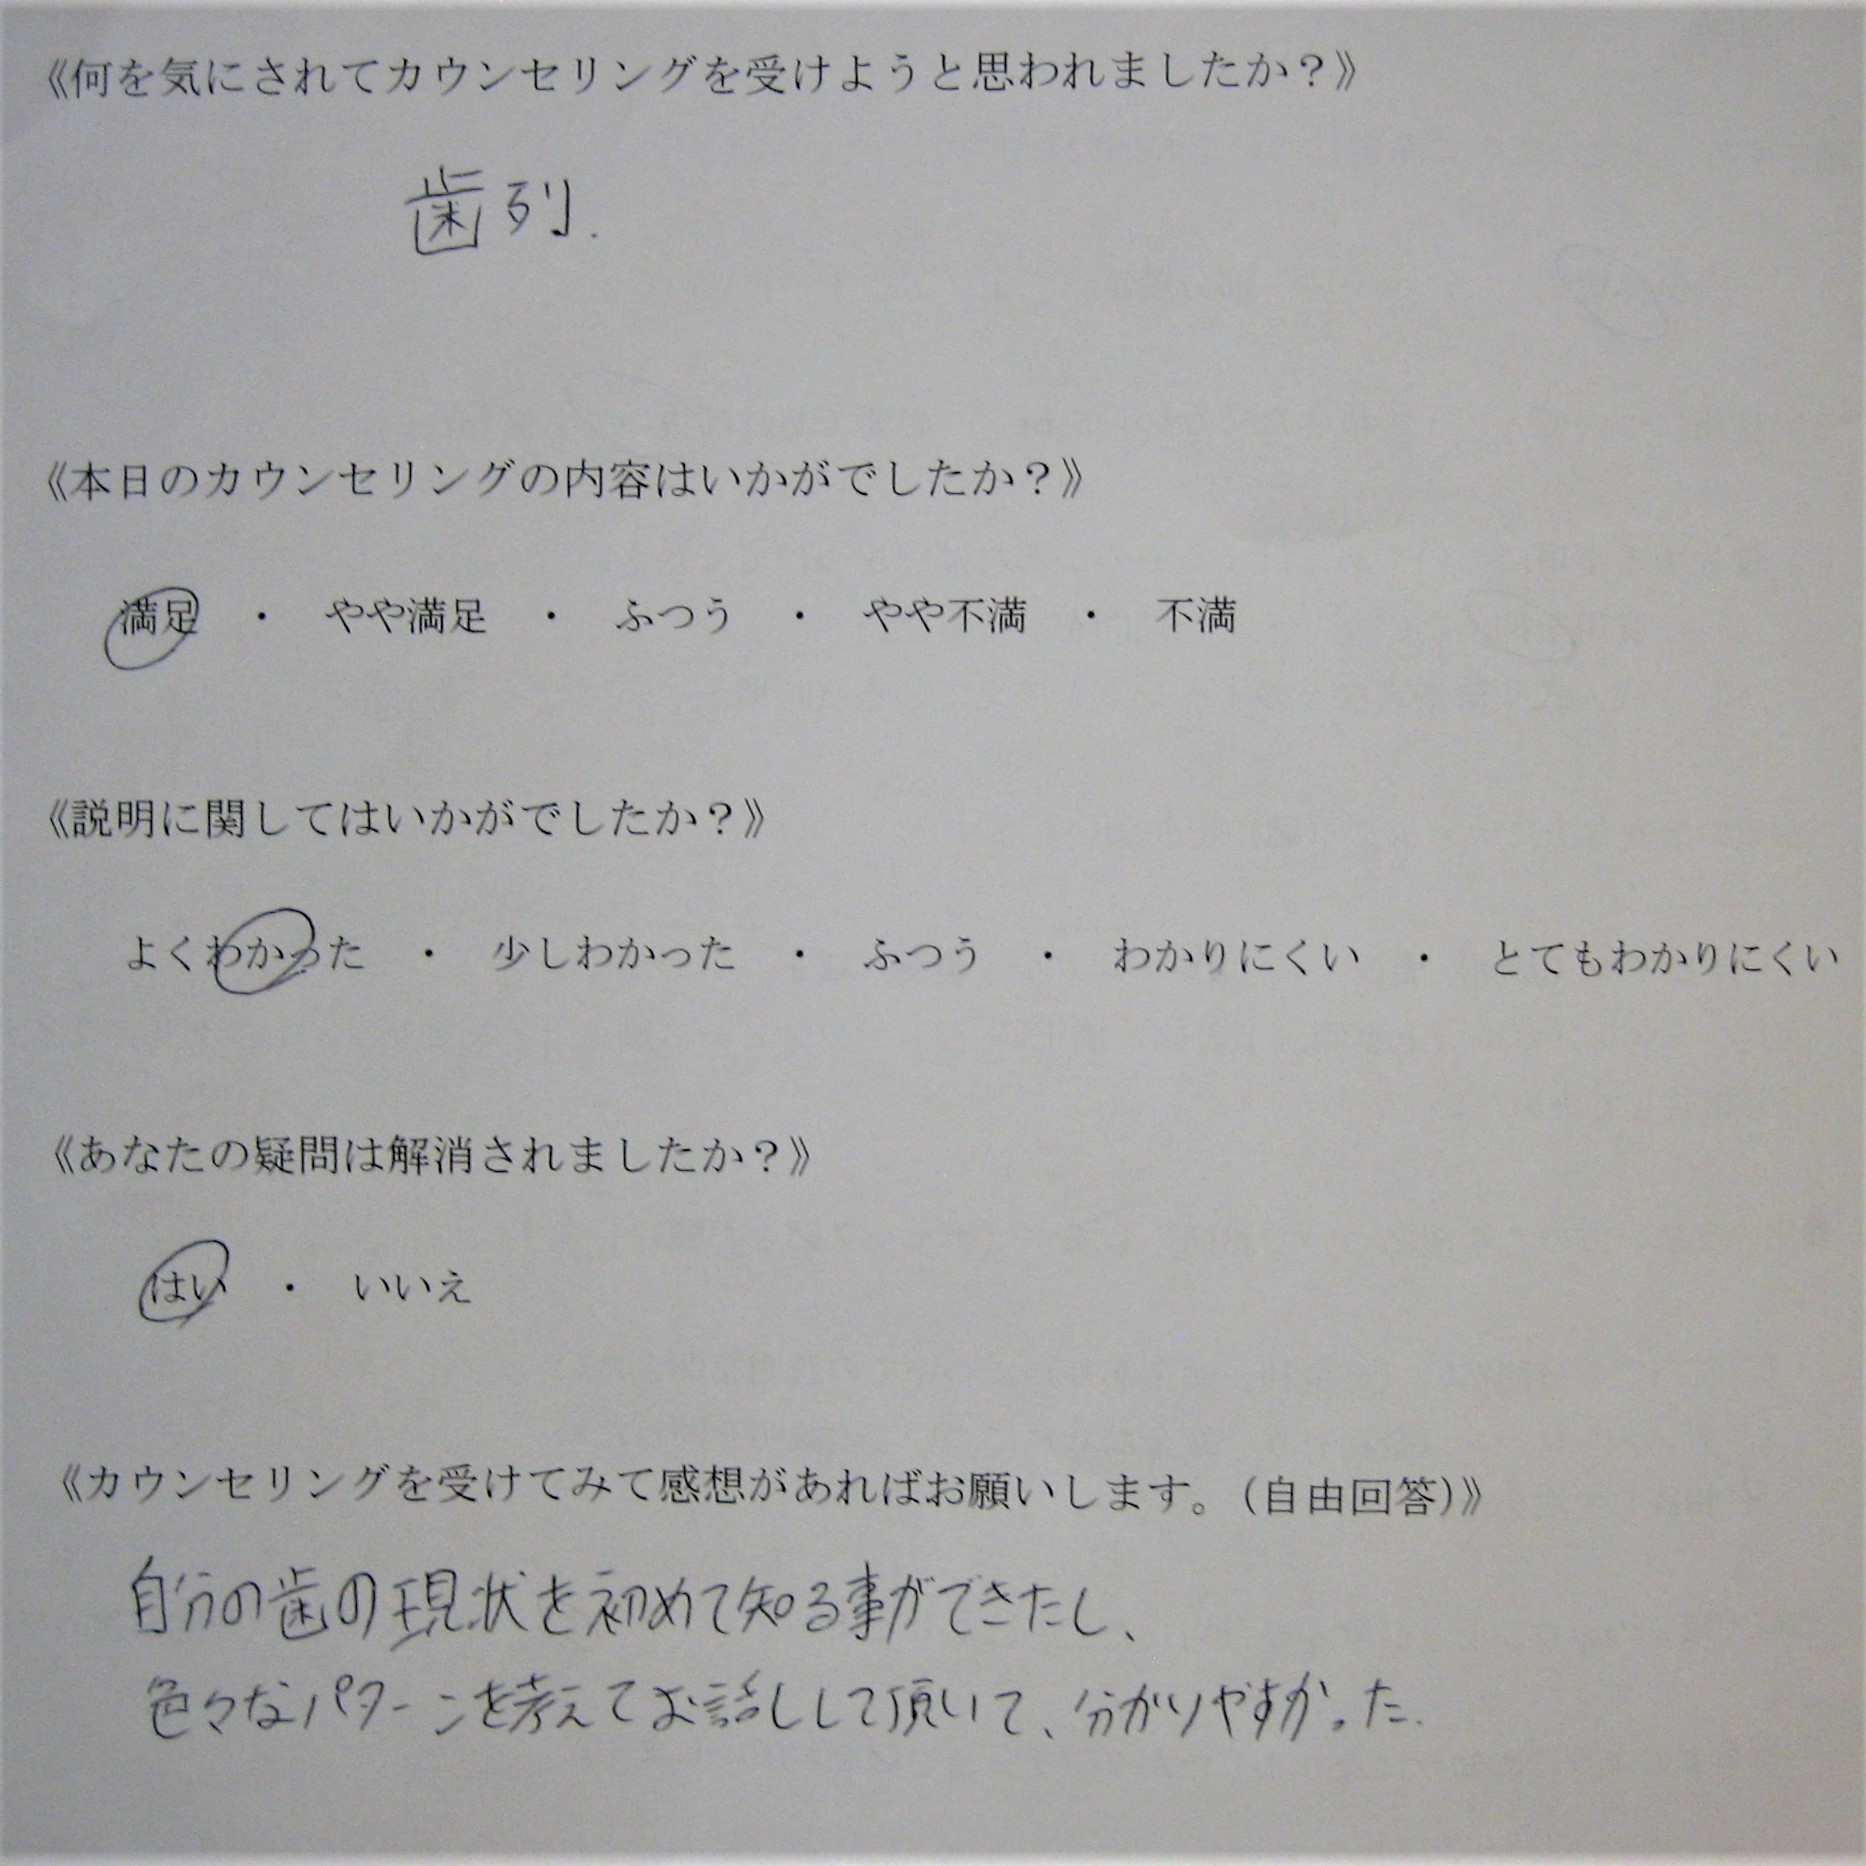 《何を気にされてカウンセリングを受けようと思われましたか？》
歯列.
《本日のカウンセリングの内容はいかがでしたか？》
満足 ・ やや満足 ・ ふつう ・ やや不満 ・ 不満
《説明に関してはいかがでしたか？》
よくわかった ・ 少しわかった ・ ふつう ・ わかりにくい ・ とてもわかりにくい
《あなたの疑問は解消されましたか？》
はい ・ いいえ
《カウンセリングを受けてみて感想があればお願いします。(自由回答)》
自分の歯の現状を初めて知る事ができたし、
色々なパターンを考えてお話しして頂いて、分かりやすかった.